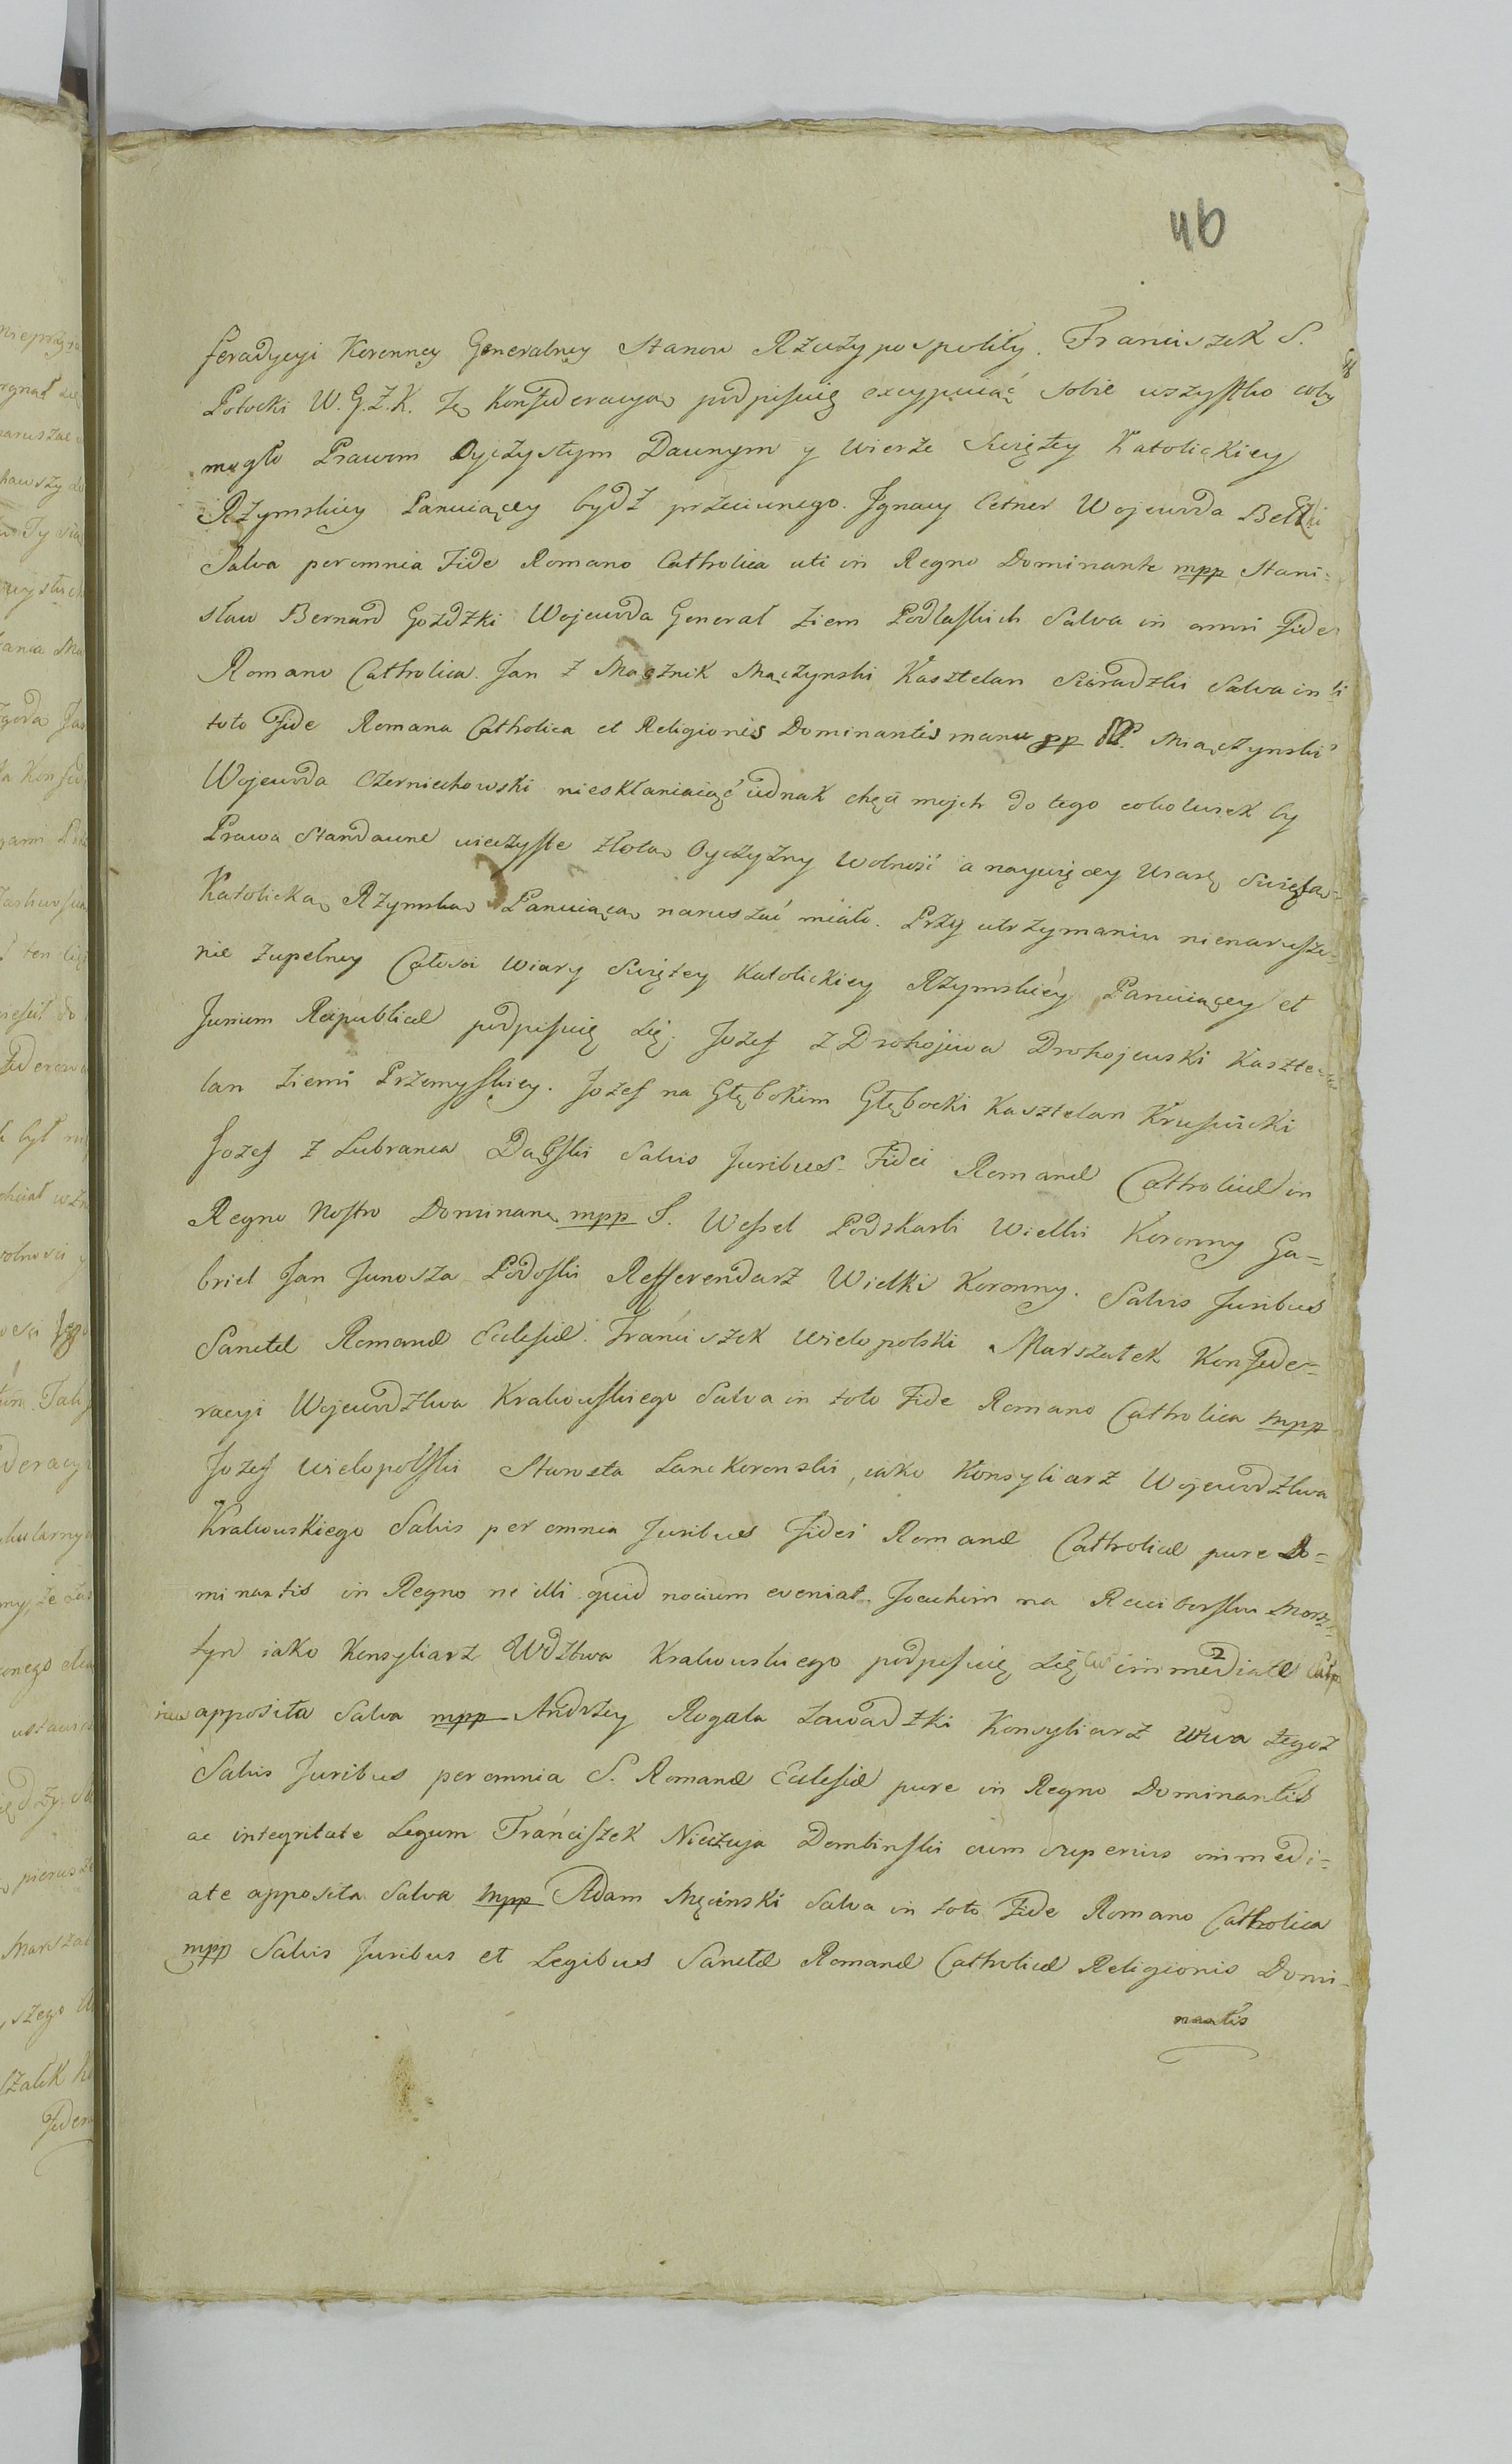 46
feradycyi Koronney Generalney Stanow Rzeczypospolity. Franciszek S.
Potocki W.G.Z.K. Tę Konfederacyą podpisuię excypuiąc sobie wszystko coby
mogło Prawom Oyczystym Dawnym y Wierze Swiętey Katolickiey
Rzymskiey Panuiącey bydź przeciwnego. Ignacy Cetner Wojewoda Bełzki
Salva per omnia Fide Romano Catholica uti in Regno Dominante mpp Stani=
sław Bernard Gozdzki Wojewoda Generał Ziem Podlaskich Salva in omni Fide
Romano Catholica. Jan z Mącznik Mączynski Kasztelan Sieradzki Salva in
toto Fide Romana Catholica et Religionis Dominantis manu pp Miączynski
Wojewoda Czerniechowski niesklaniaiąc iednak chęci mojch do tego cokolwiek by
Prawa Starodawne wieczyste złotą Oyczyzny Wolność a naywięcey Wiarę Swiętą
Katolicką Rzymską Panuiącą naruszać miało. Przy utrzymaniu nienarusze=
nie zupełney Całosci Wiary Swiętey Katolickiey Rzymskiéy Panuiącey et
Jurium Reipublicæ podpisuię się. Jozef z Drohojewa Drohojewski Kaszte=
lan Ziemi Przemyskiey. Jozef na Głębokim Głębocki Kasztelan Kruswicki
Jozef z Lubrança Dąbski Salvis Juribus Fidei Romanæ Catholicæ in
Regno Nostro Dominan. mpp S. Wessel Podskarbi Wielki Koronny Ga=
briel Jan Junosza Podoski Refferendarz Wielki Koronny. Salvis Juribus
Sanctæ Romanæ Ecclesiæ. Franciszek Wielopolski Marszałek Konfede=
racyi Wojewodztwa Krakowskiego Salva in toto Fide Romano Catholica mpp
Jozef Wielopolski Starosta Lanckoronski, iako Konsyliarz Wojewodztwa
Krakowskiego Salvis per omnia Juribus Fidei Romanæ Catholicæ pure Do=
minantis in Regno ne illi quid nocium eveniat. Joachim na Raciborsku Morsz=
tyn iako Konsyliarz Wdztwa Krakowskiego podpisuię się immediate
apposita Salva mpp Andrzey Rogala Zawadzki Konsyliarz Wwa tegoz
Salvis Juribus per omnia S. Romanæ Ecclesiæ pure in Regno Dominantis
ac integritate Legum Franciszek Nieczuja Dembinski cum superius immedi=
ate apposita Salva mpp Adam Męcinski Salva in toto Fide Romano Catholica
mpp Salvis Juribus et Legibus Sanctæ Romanæ Catholicæ Religionis Domi-
nantis